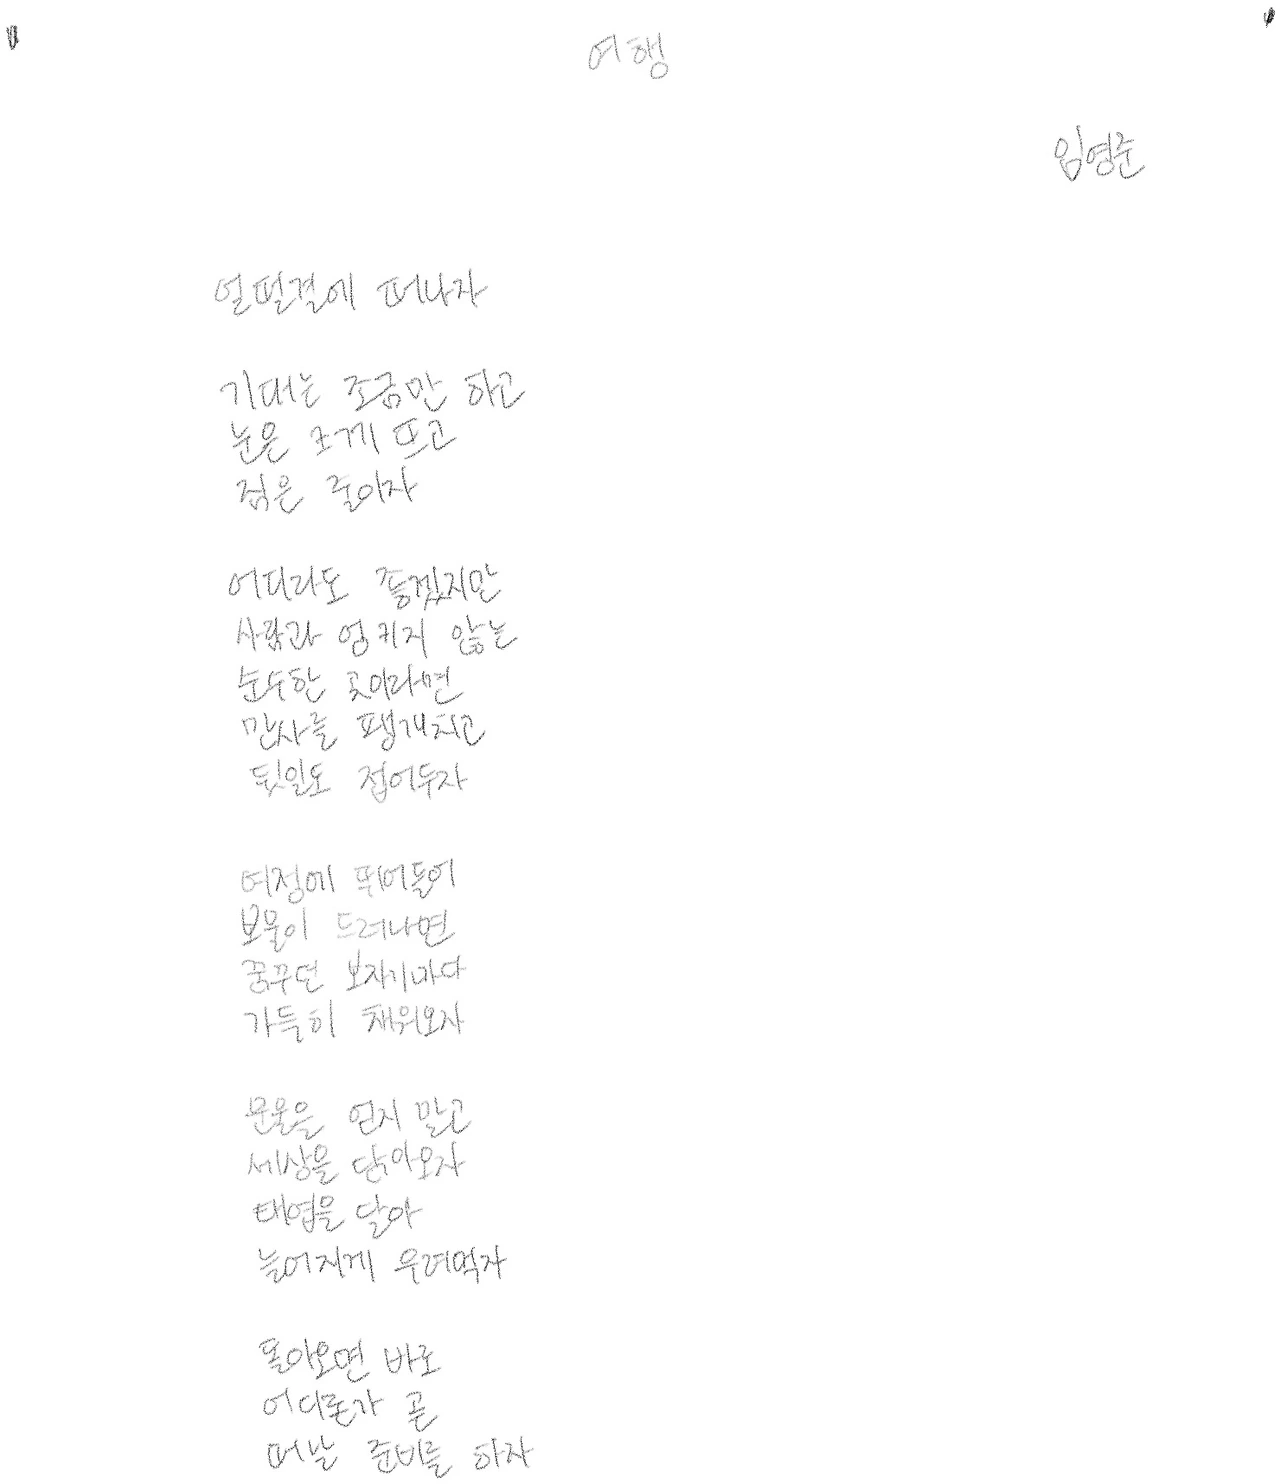 여행
임영준
얼떨결에 떠나자
기대는 조금만 하고
눈은 크게 뜨고
짐은 줄이자
어디라도 좋겠지만
사람과 엉키지 않는
순수한 곳이라면
만사를 팽개치고
뒷일도 접어두자
여정에 뛰어들어
보물이 드러나면
꿈꾸던 보자기마다
가득히 채워오자
문물을 얻지 말고
세상을 닮아오자
태엽을 달아
늘어지게 우려먹자
돌아오면 바로
어디론가 곧
떠날 준비를 하자